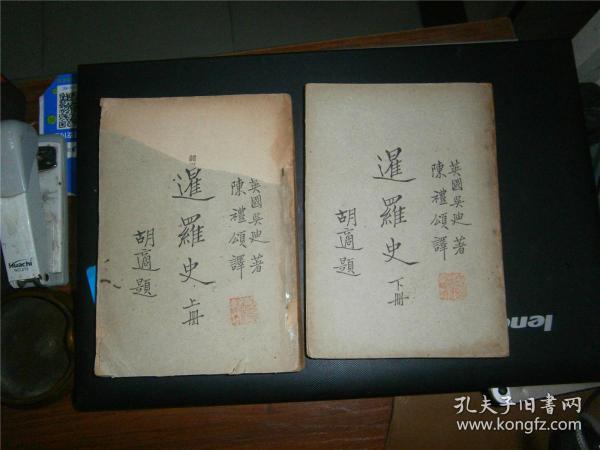 英國吳迪著
陳禮頌譯
暹羅史 上冊
胡適題
英國吳迪著
陳禮頌譯
暹羅史 下冊
胡適題
Huachi
lenov
孔夫子旧书网
www.kongfz.com